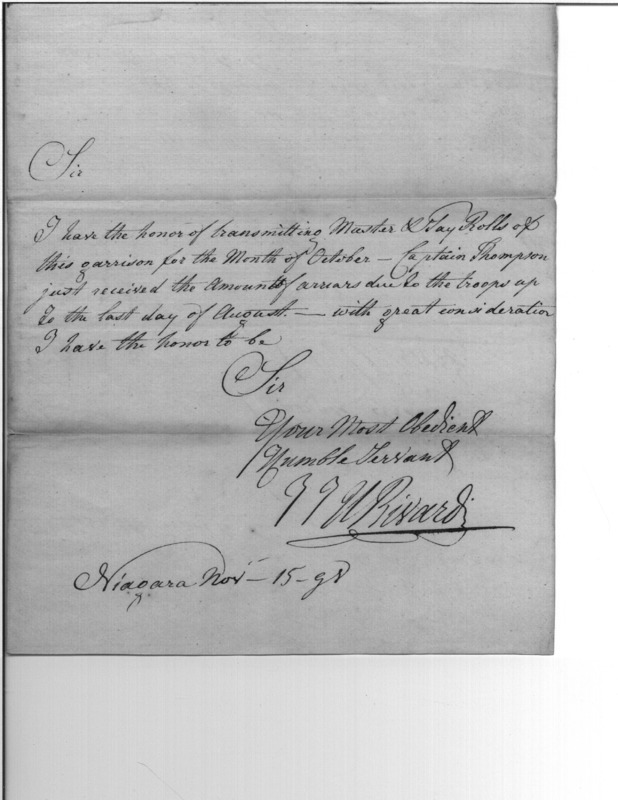 Sir
I have the honor of transmitting Muster & Pay Rolls of
this garrison for the Month of October — Captain Thompson
just received the Amount of arriars due to the troops up
to the last day of August. — with great consideration
I have the honor to be
Sir
Your Most Obedient
Humble Servant
J J U Rivardi
Niagara Nov — 15 - 98